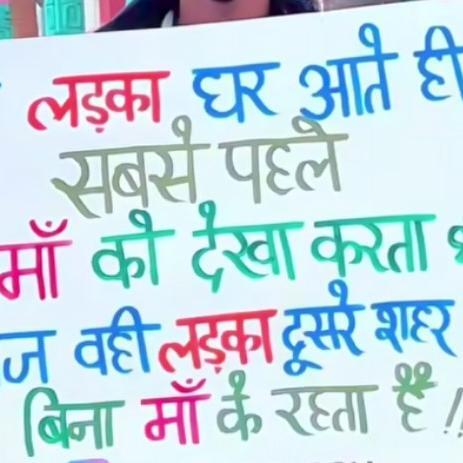 लड़का घर आते ही
सबसे पहले
माँ को देखा करता
वही लड़का दूसरे शहर
बिना माँ के रहता है !!